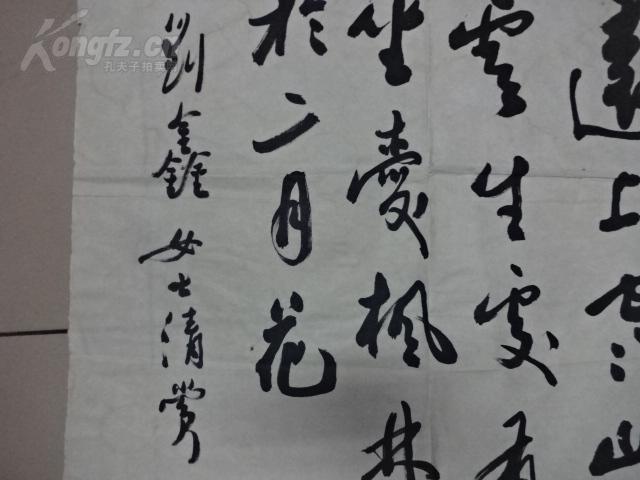 遠上寒山
雲生處有
坐愛楓林
於二月花
劉鑫女士清賞
Kongfz.c
孔夫子拍卖